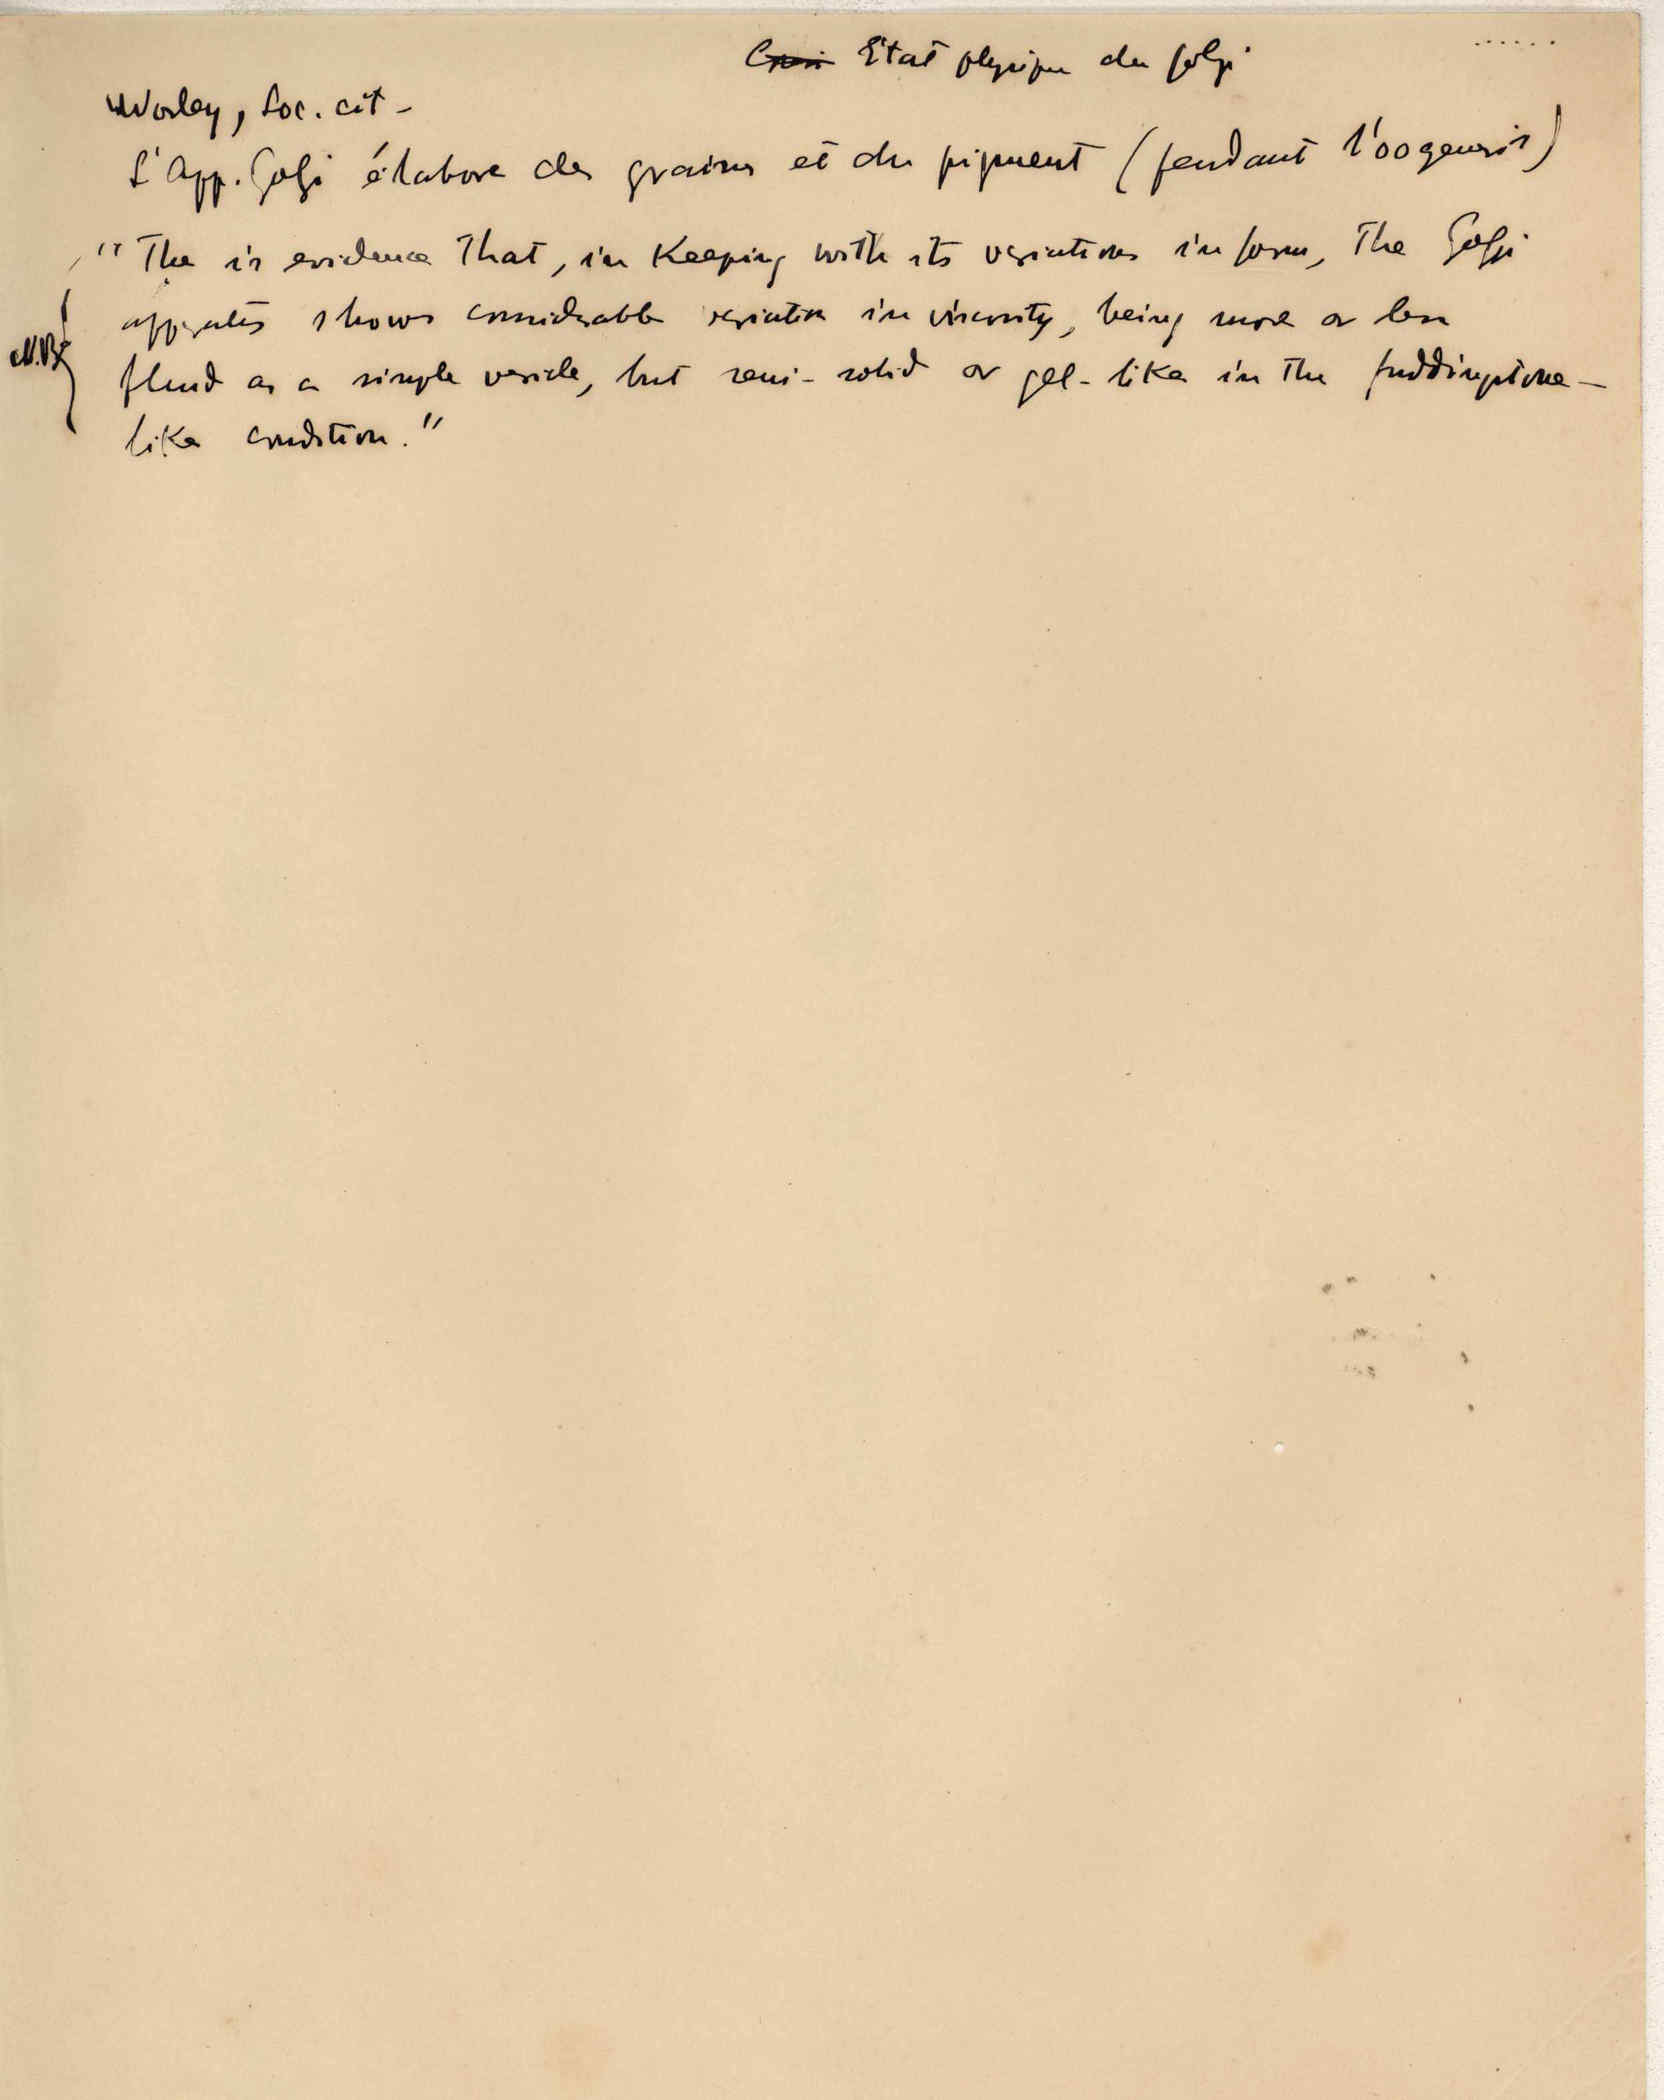 Etat physique du golgi
Worley, Loc. cit -
L'App. Golgi élabore des grains et du pigment (pendant l'oogenesis)
"The is evidence that, in keeping with its variations in form, the Golgi
N.B. apparatus shows considerable variation in viscosity, being more or less
fluid as a simple vesicle, but semi-solid or gel-like in the puddingstone-
like condition."